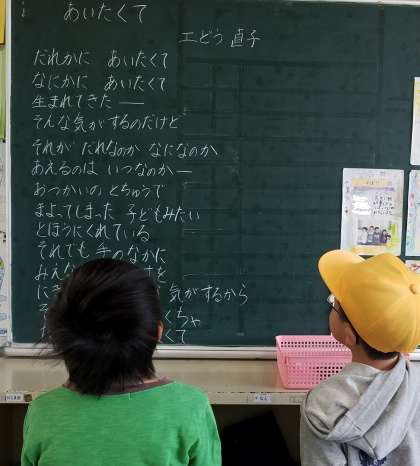 あいたくて
工どう 直子
だれかに あいたくて
なにかに あいたくて
生まれてきた――
そんな気がするのだけど
それが だれなのか なになのか
あえるのは いつなのか―
おつかいの とちゅうで
まよってしまった 子どもみたい
とほうにくれている
それでも 手のなかに
みえな
を
に
気がするから
くちゃ
くて